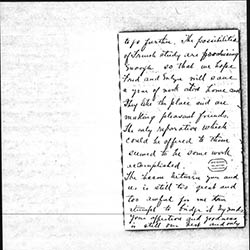 to go further. The possibilities
of French study are promising
enough, so that we hope
Fred and Evlyn will save
a year of work at home and
they like the place and are
making pleasant friends.
The only reparation which
could be offered to them
seemed to be some work
accomplished.
The between you and
us is still too great and
too awful for me to
attempt to bridge it by words,
Your affection and goodness
is still our best and only